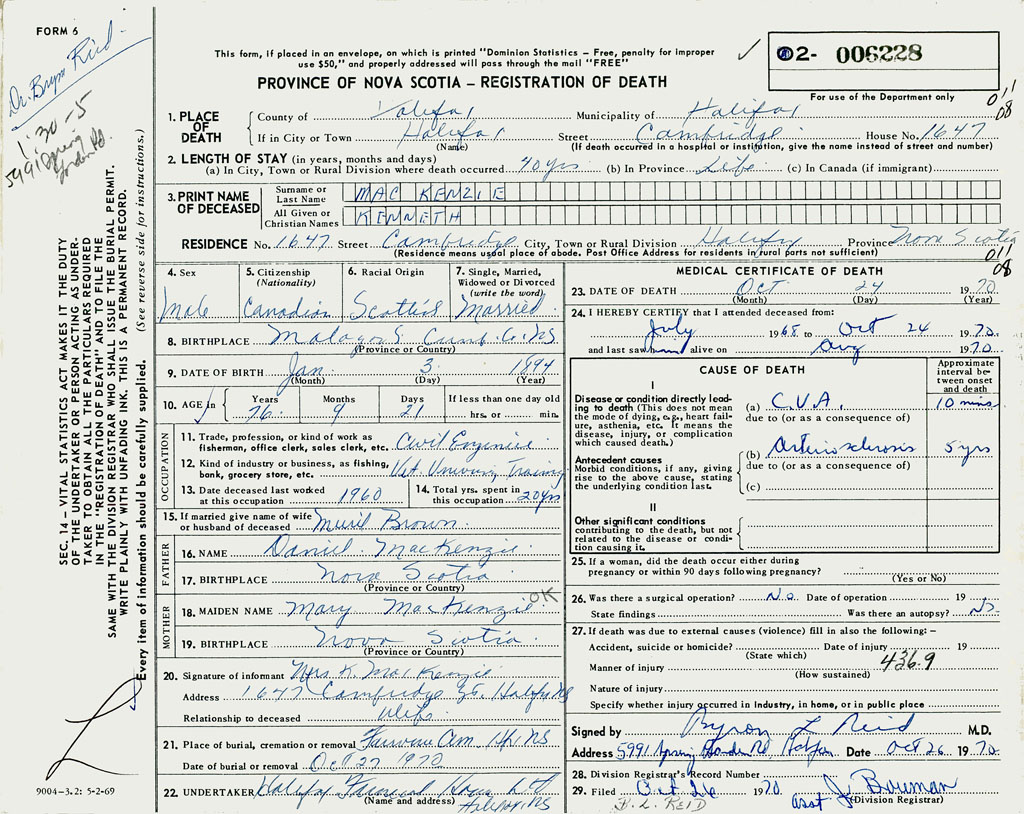 FORM 6
Dr. Byron Reid
1:30-5
5991 Spring Garden Rd
This form, if placed in an envelope, on which is printed "Dominion Statistics – Free, penalty for improper
use $50," and properly addressed will pass through the mail "FREE"
PROVINCE OF NOVA SCOTIA – REGISTRATION OF DEATH
02- 006228
For use of the Department only
011
08
1. PLACE OF DEATH
County of Halifax Municipality of Halifax
If in City or Town Halifax Street Cambridge House No. 1647
(Name) (If death occurred in a hospital or institution, give the name instead of street and number)
2. LENGTH OF STAY (in years, months and days)
(a) In City, Town or Rural Division where death occurred 40 yrs (b) In Province Life (c) In Canada (if immigrant)
3. PRINT NAME OF DECEASED
Surname or Last Name MAC KENZIE
All Given or Christian Names KENNETH
RESIDENCE No. 1647 Street Cambridge City, Town or Rural Division Halifax Province Nova Scotia
(Residence means usual place of abode. Post Office Address for residents in rural parts not sufficient)
011
08
4. Sex Male
5. Citizenship (Nationality) Canadian
6. Racial Origin Scottis
7. Single, Married, Widowed or Divorced (write the word) Married
8. BIRTHPLACE Cumb. Co. NS
(Province or Country)
9. DATE OF BIRTH Jan 3 1894
(Month) (Day) (Year)
10. AGE in Years 76 Months 9 Days 21 If less than one day old hrs. or min.
OCCUPATION
11. Trade, profession, or kind of work as fisherman, office clerk, sales clerk, etc. Civil Enginier
12. Kind of industry or business, as fishing, bank, grocery store, etc. Training
13. Date deceased last worked at this occupation 1960
14. Total yrs. spent in this occupation 20 yrs
15. If married give name of wife or husband of deceased Muril Brown
FATHER
16. NAME Daniel MacKenzie
17. BIRTHPLACE Nova Scotia
(Province or Country)
MOTHER
18. MAIDEN NAME Mary MacKenzie OK
19. BIRTHPLACE Nova Scotia
(Province or Country)
20. Signature of informant Mrs K. MacKenzie
Address 1647 Cambridge St. Halifax NS
Relationship to deceased Wife
21. Place of burial, cremation or removal Fairview Cem. Hfx NS
Date of burial or removal Oct 27 1970
22. UNDERTAKER Halifax Funeral Home Ltd
(Name and address) Halifax, NS
MEDICAL CERTIFICATE OF DEATH
23. DATE OF DEATH Oct 24 1970
(Month) (Day) (Year)
24. I HEREBY CERTIFY that I attended deceased from:
July 1968 to Oct 24 1970
and last saw him alive on Aug 1970
CAUSE OF DEATH
Approximate interval between onset and death
I
Disease or condition directly leading to death (This does not mean the mode of dying, e.g., heart failure, asthenia, etc. It means the disease, injury, or complication which caused death.)
(a) C.V.A. 10 mins
due to (or as a consequence of)
Antecedent causes
Morbid conditions, if any, giving rise to the above cause, stating the underlying condition last.
(b) Arteriosclerosis 5 yrs
due to (or as a consequence of)
(c)
II
Other significant conditions
contributing to the death, but not related to the disease or condition causing it.
25. If a woman, did the death occur either during
pregnancy or within 90 days following pregnancy?
(Yes or No)
26. Was there a surgical operation? No Date of operation 19
State findings Was there an autopsy? No
27. If death was due to external causes (violence) fill in also the following: –
Accident, suicide or homicide? Date of injury 19
(State which)
Manner of injury 436.9
(How sustained)
Nature of injury
Specify whether injury occurred in industry, in home, or in public place
Signed by Byron L Reid M.D.
Address 5991 Spring Garden Rd, Halifax Date Oct 26 1970
28. Division Registrar's Record Number
29. Filed Oct 26 1970 asst J. Bowman
(Division Registrar)
B. L. REID
SEC. 14 – VITAL STATISTICS ACT MAKES IT THE DUTY
OF THE UNDERTAKER OR PERSON ACTING AS UNDERTAKER
TO OBTAIN ALL THE PARTICULARS REQUIRED
IN THE "REGISTRATION OF DEATH" AND TO FILE THE
SAME WITH THE DIVISION REGISTRAR WHO SHALL ISSUE THE BURIAL PERMIT.
WRITE PLAINLY WITH UNFADING INK. THIS IS A PERMANENT RECORD.
Every item of information should be carefully supplied. (See reverse side for instructions.)
9004-3.2: 5-2-69